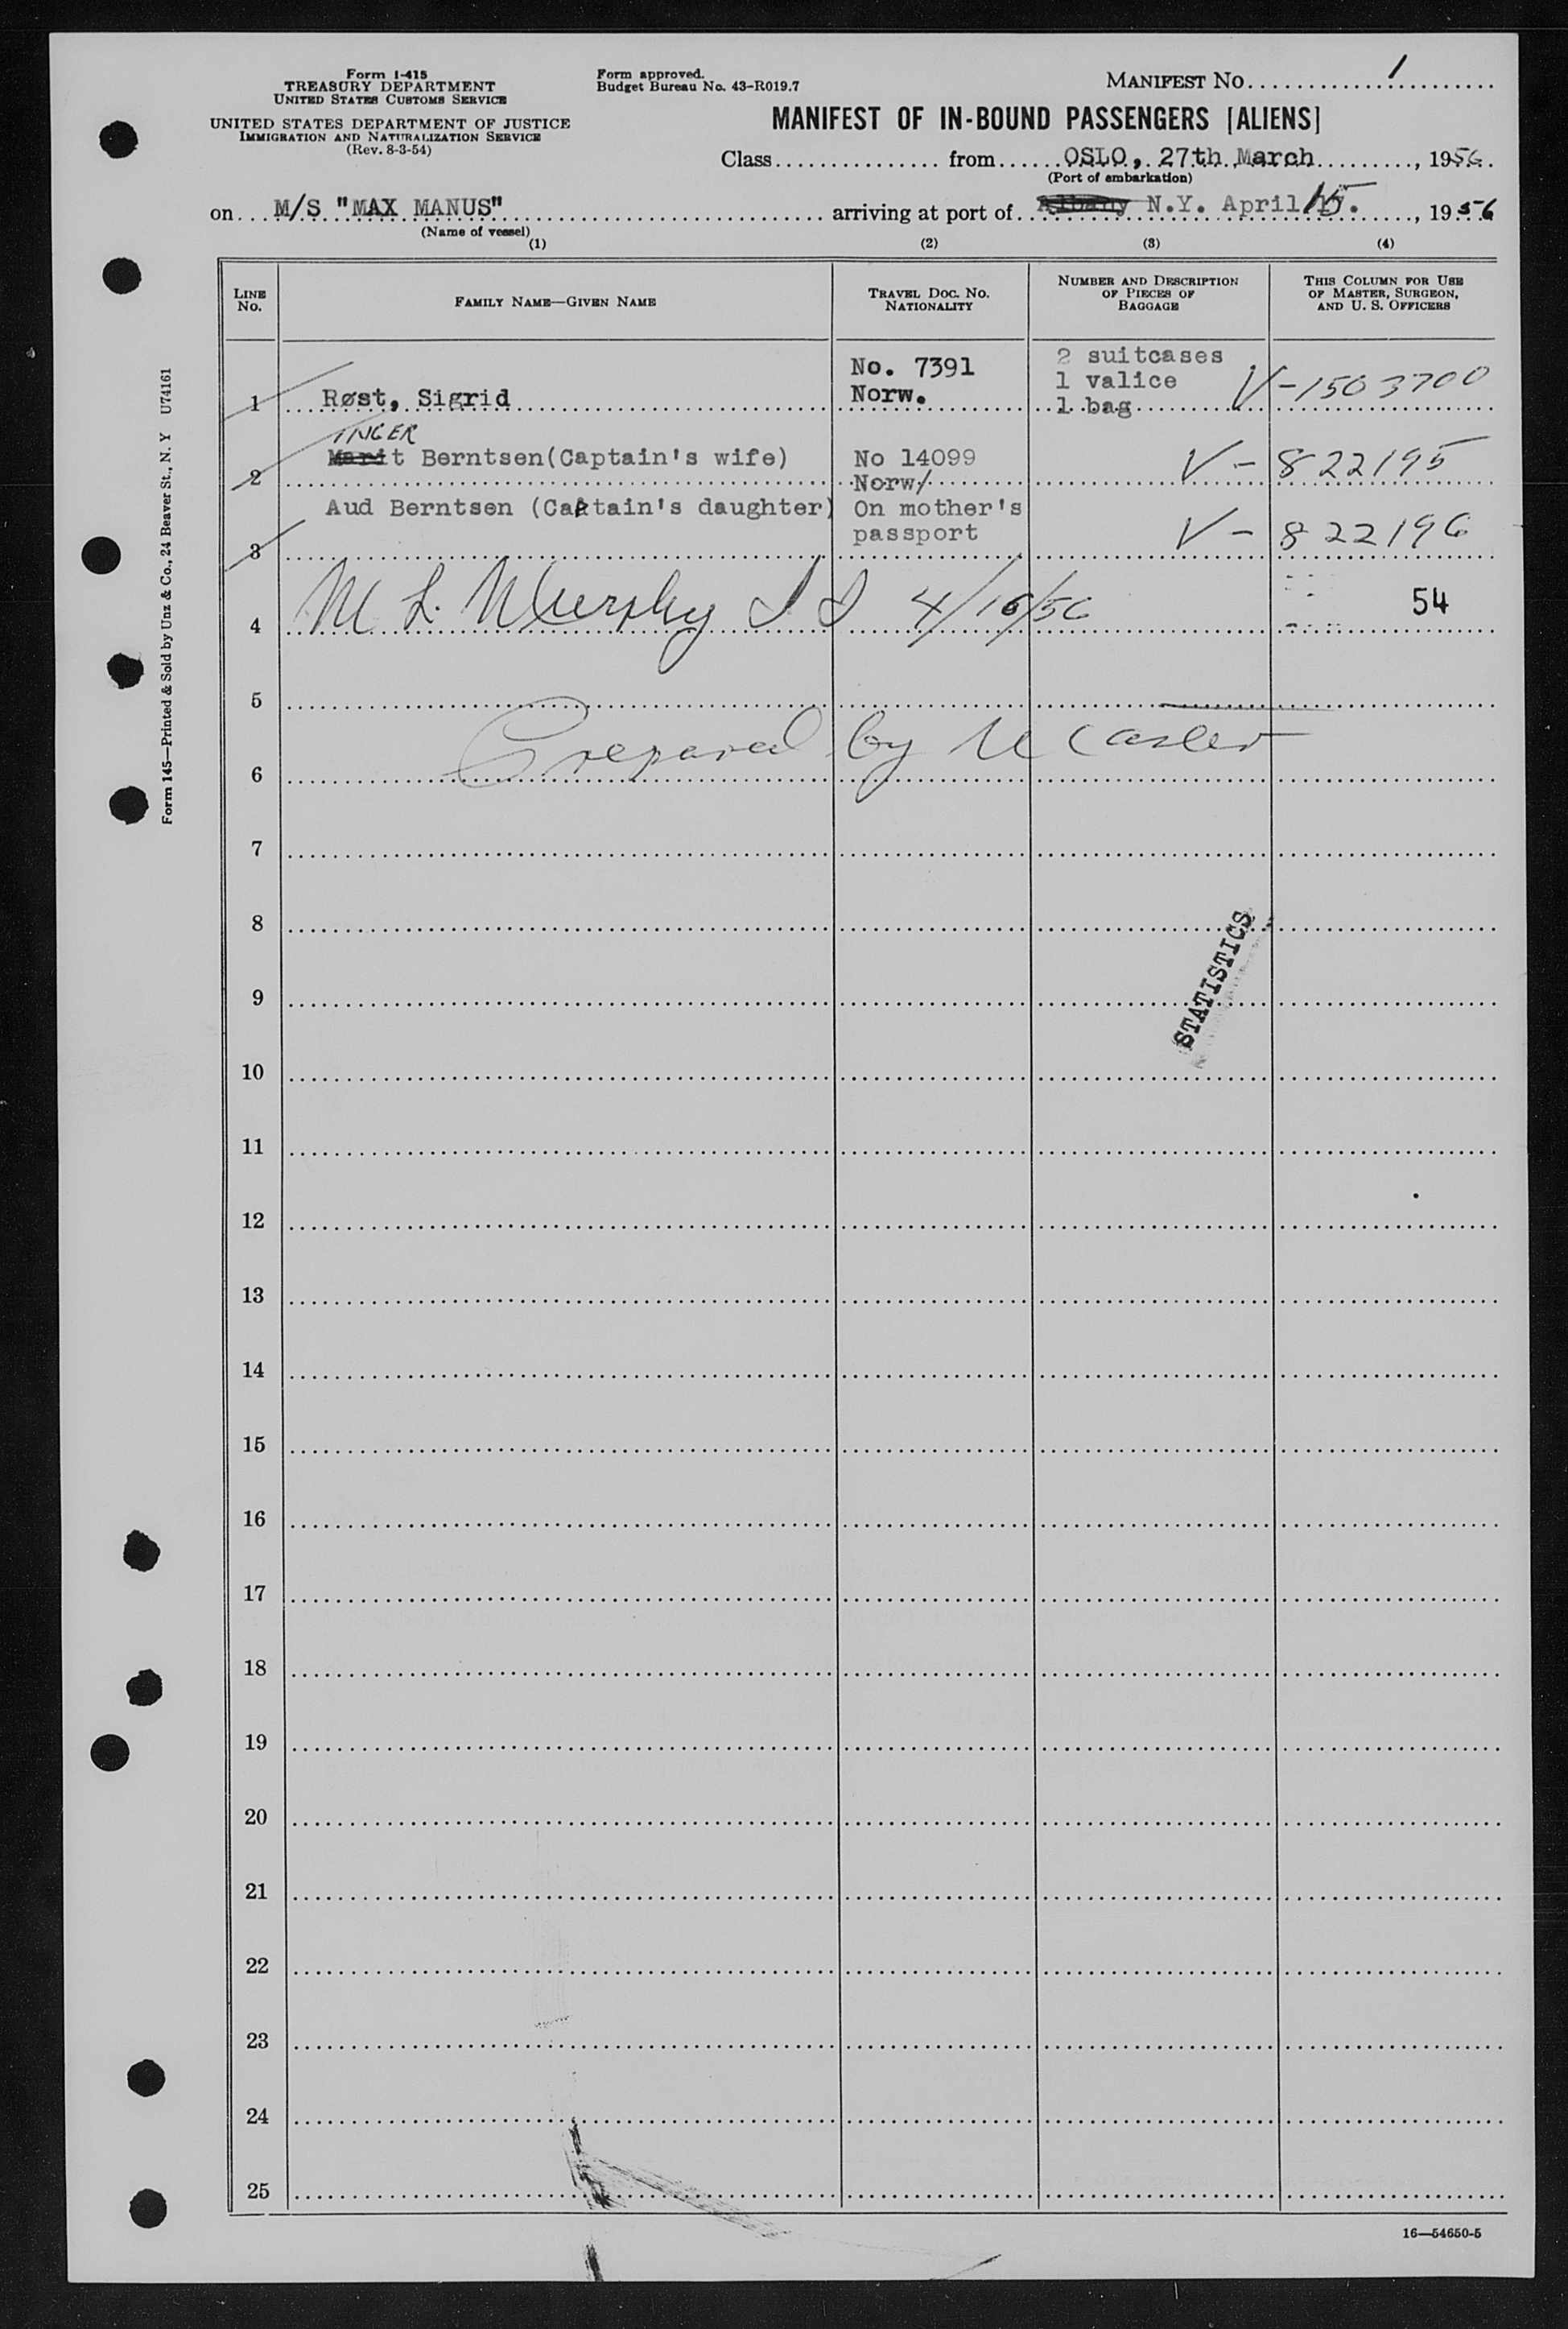 Form I-415
TREASURY DEPARTMENT
UNITED STATES CUSTOMS SERVICE
UNITED STATES DEPARTMENT OF JUSTICE
IMMIGRATION AND NATURALIZATION SERVICE
(Rev. 8-3-54)
Form approved.
Budget Bureau No. 43-R019.7
MANIFEST NO. 1
MANIFEST OF IN-BOUND PASSENGERS [ALIENS]
Class from OSLO, 27th March, 1956
(Port of embarkation)
on M/S "MAX MANUS" arriving at port of Albany N.Y. April 15., 1956
(Name of vessel)
(1) (2) (3) (4)
LINE NO.
FAMILY NAME—GIVEN NAME
TRAVEL DOC. NO. NATIONALITY
NUMBER AND DESCRIPTION OF PIECES OF BAGGAGE
THIS COLUMN FOR USE OF MASTER, SURGEON, AND U. S. OFFICERS
1 Røst, Sigrid No. 7391 Norw. 2 suitcases 1 valice 1 bag V-1503700
INGER
2 Marit Berntsen(Captain's wife) No 14099 Norw/ V-822195
3 Aud Berntsen (Captain's daughter) On mother's passport V-822196
4 M L. Murphy I I 4/16/56 54
5
Prepared by
6
7
8
STATISTICS
9
10
11
12
13
14
15
16
17
18
19
20
21
22
23
24
25
16—54650-5
Form 145—Printed & Sold by Unz & Co., 24 Beaver St., N. Y U74161